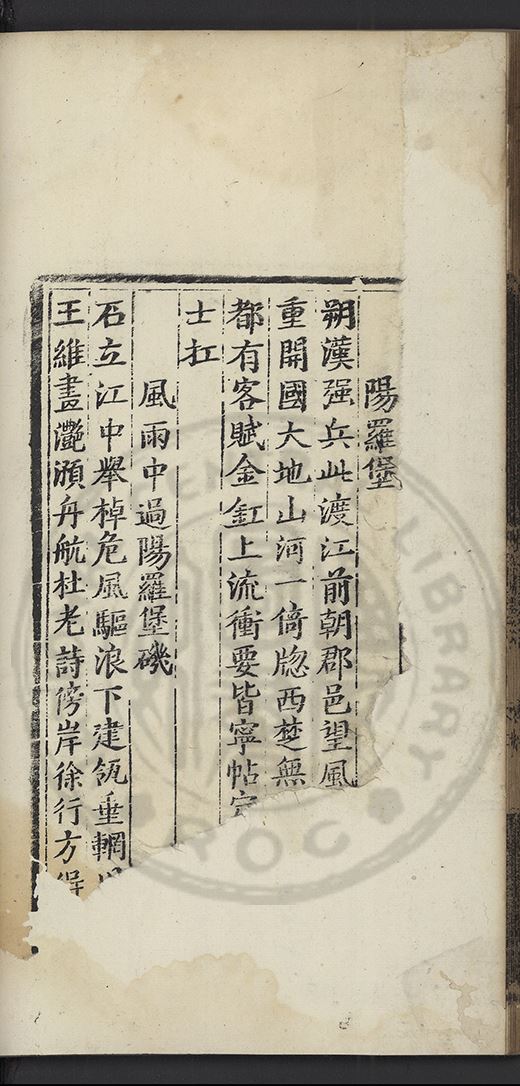 陽羅堡
朔漢强兵此渡江前朝郡邑望風
重開國大地山河一倚牎西楚無
都有客賦金釭上流衝要皆寧帖
士扛
風雨中過陽羅堡磯
石立江中舉棹危風驅浪下建瓴垂輞
王維畫灧澦舟航杜老詩傍岸徐行方
LIBRARY
ROC